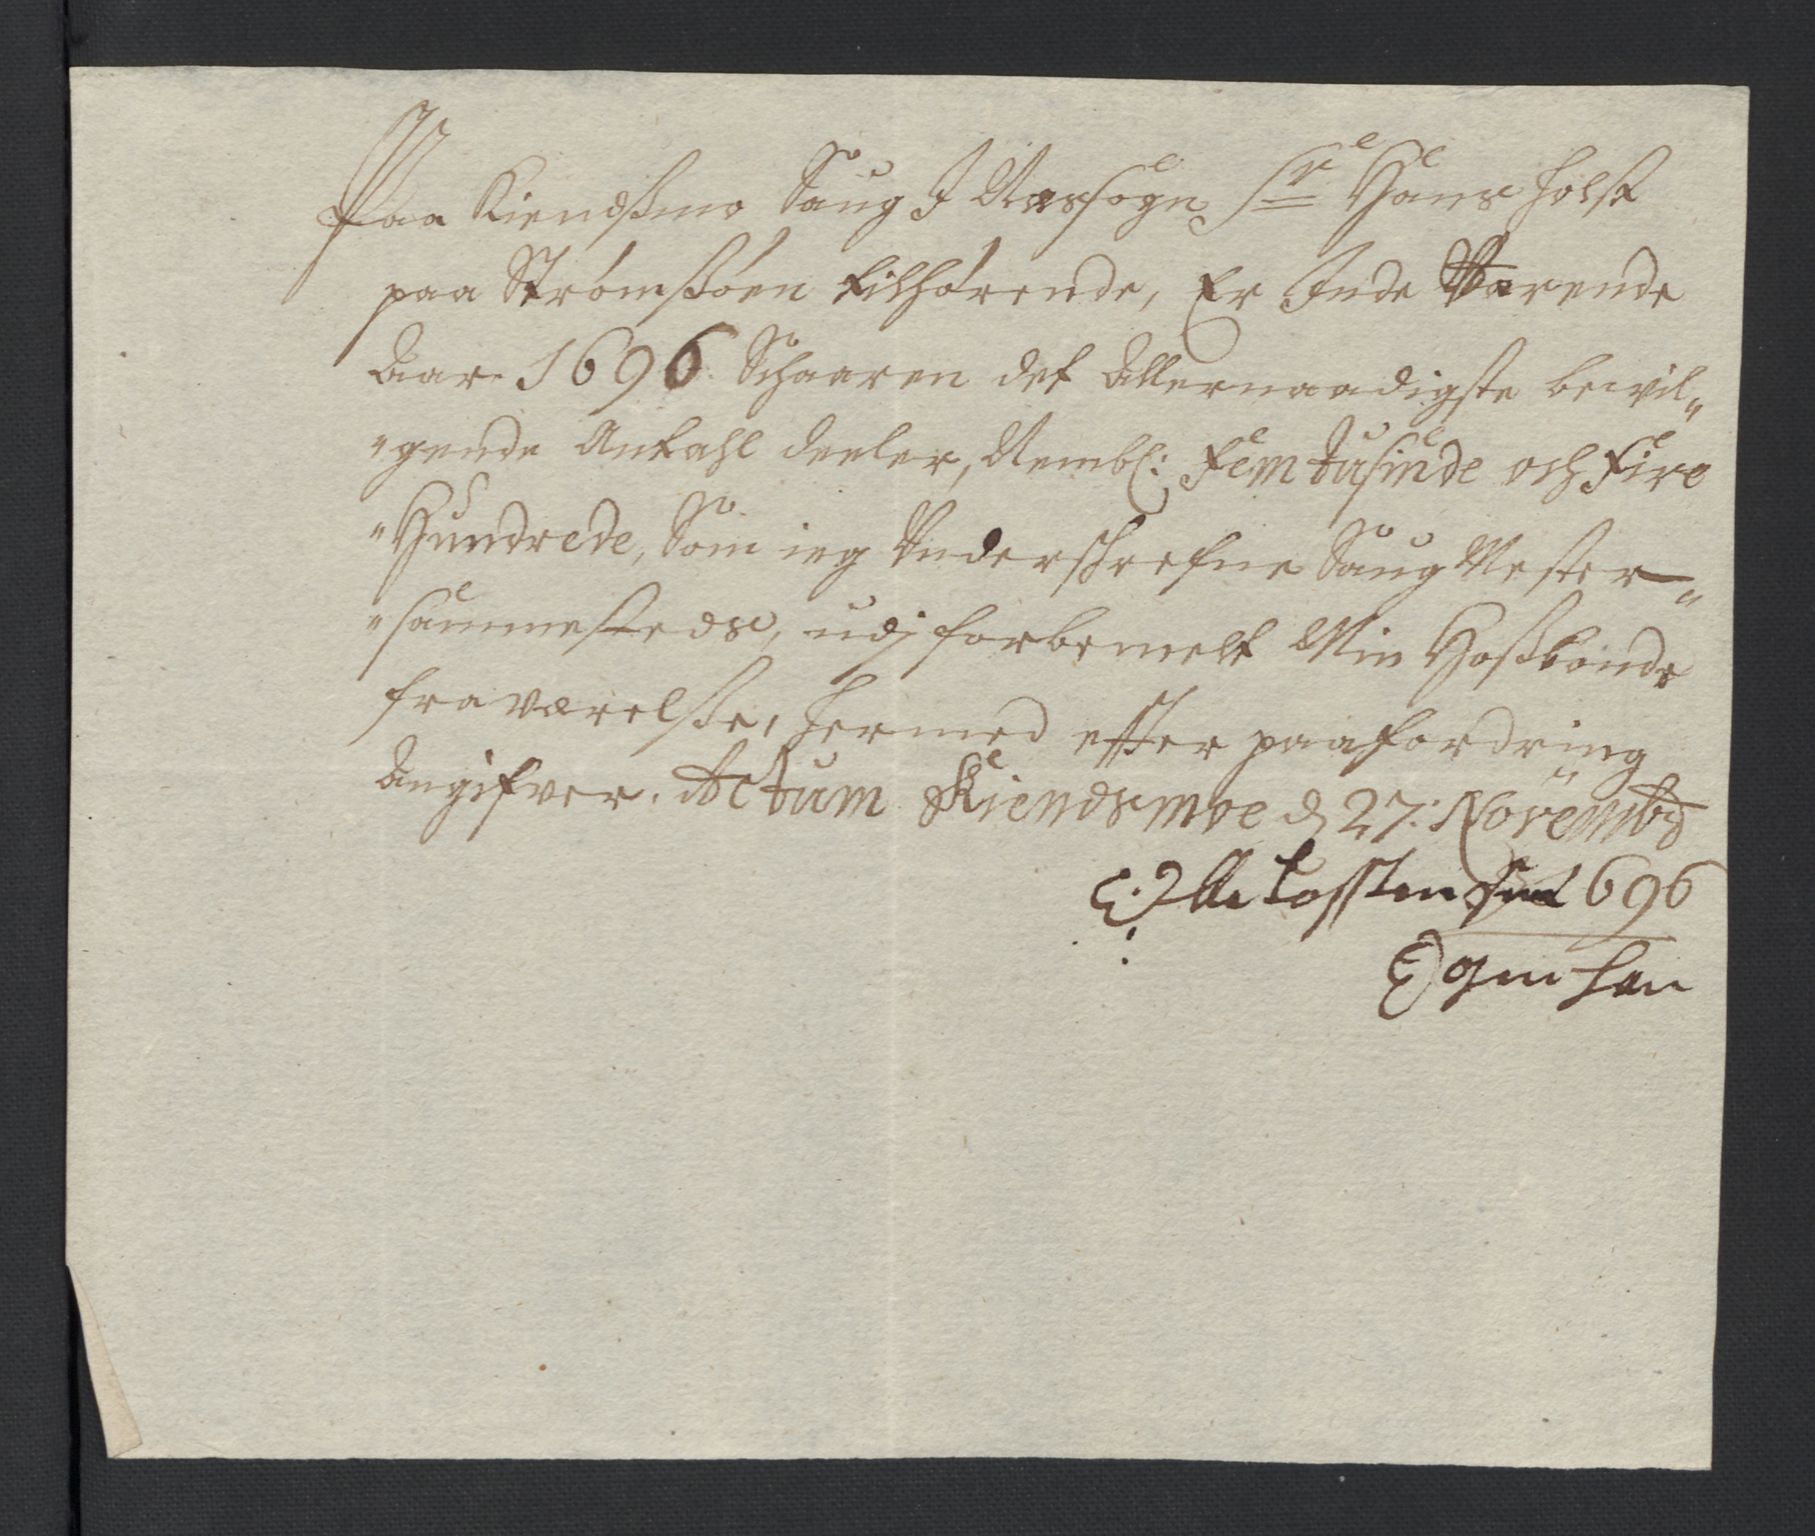 Paa Kiendßmo Saug I Næs sogn, Sr Hans Holst
paa Strømßøen tilhørende, Er Inde Værende
Aar 1696 Schaaren det Allernaadigste bevil„
„gende Antahl deeler, Nembl: Fem tusinde och Fire
„Hundrede, Som ieg Underschrefne Saug Mester„
„sammesteds, udj forbemelt Min Hoßbonde
fraværelße, hermed effter paafordring
Angifver. Actum Kiendsmoe d 27: Novembr
Olle Tossten Søn 1696
Egen han